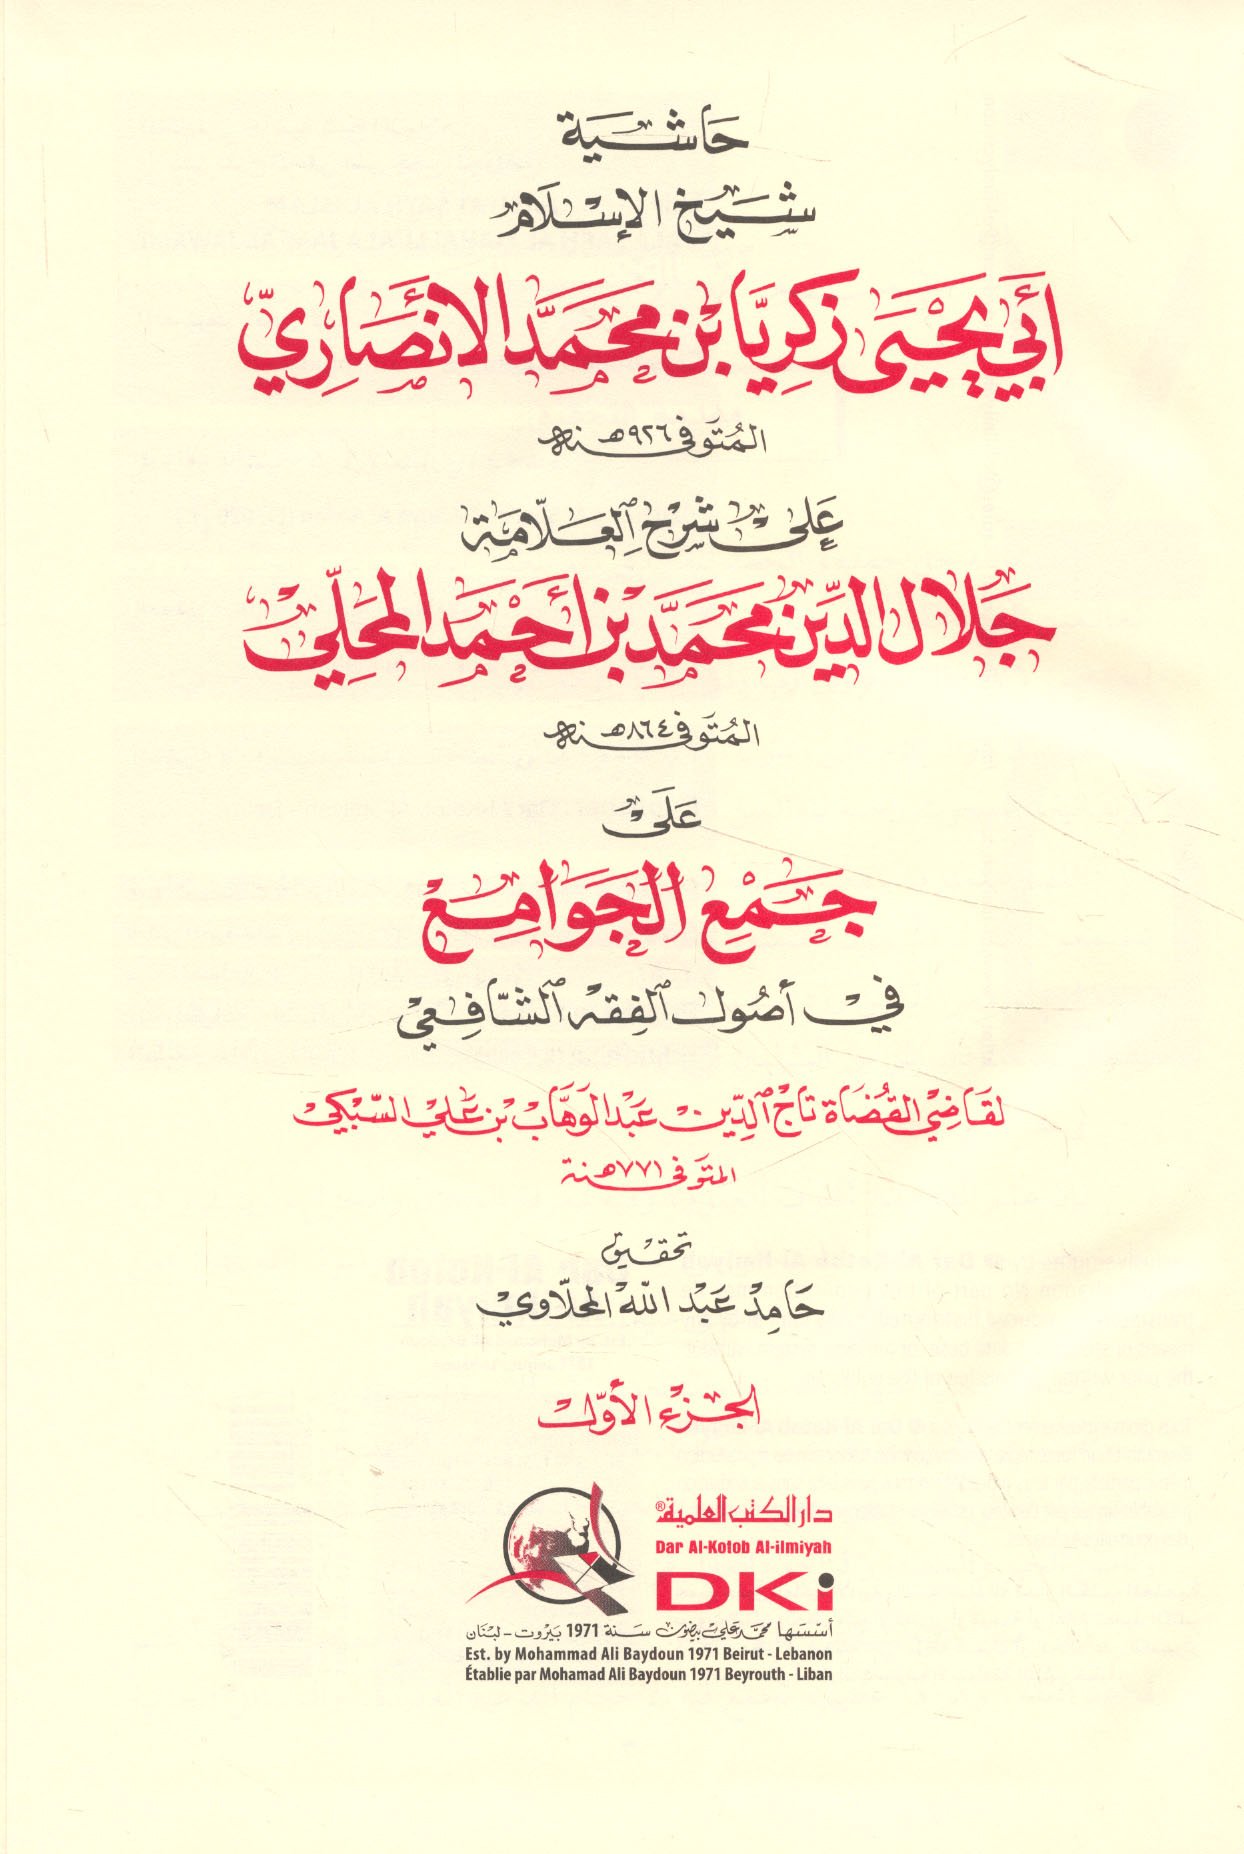 حَاشِيَة
شَيْخ الإِسْلَام
أَبِي يَحْيَى زَكَرِيَّا بْن مُحَمَّد الأَنْصَارِيّ
المُتَوَفى ٩٢٦هـ سنة
عَلَى شَرْح العَلَّامَة
جَلَال الدِّين مُحَمَّد بْن أَحْمَد المَحَلِّي
المُتَوَفى ٨٦٤هـ سنة
عَلَى
جَمْع الجَوَامِع
في أصُول الفِقه الشَّافِعي
لقَاضِي القُضَاة تَاج الدِّين عَبْد الوَهَّاب بْن عَلي السّبْكي
المتوَفى ٧٧١هـ سنة
تحقيق
حَامِد عَبْد الله المحلّاوي
الجُزء الأوّل
دار الكتب العلمية®
Dar Al-Kotob Al-ilmiyah
DKi
أسّسَها محمّد عَلي بيضون سَنة 1971 بَيروت - لبْنَان
Est. by Mohammad Ali Baydoun 1971 Beirut - Lebanon
Établie par Mohamad Ali Baydoun 1971 Beyrouth - Liban